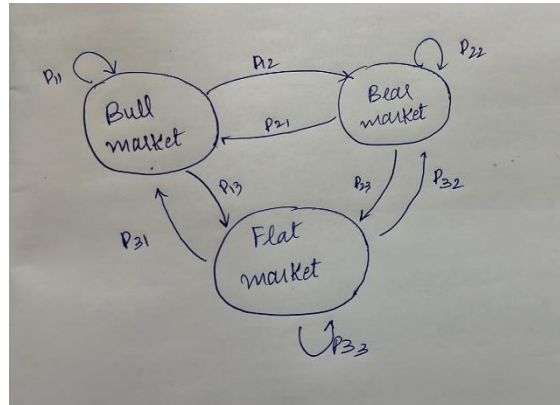 P11
P12
P22
Bull
market
Bear
market
P21
P13
P23
P32
P31
Flat
market
P33